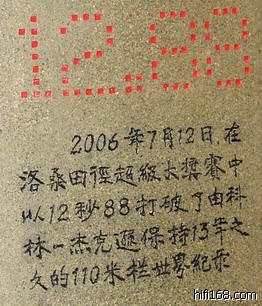 12.88
2006年7月12日,在
洛桑田徑超級大獎賽中
以12秒88打破了由科
林一杰克遜保持13年之
久的110米栏世界纪录
hifi168.com